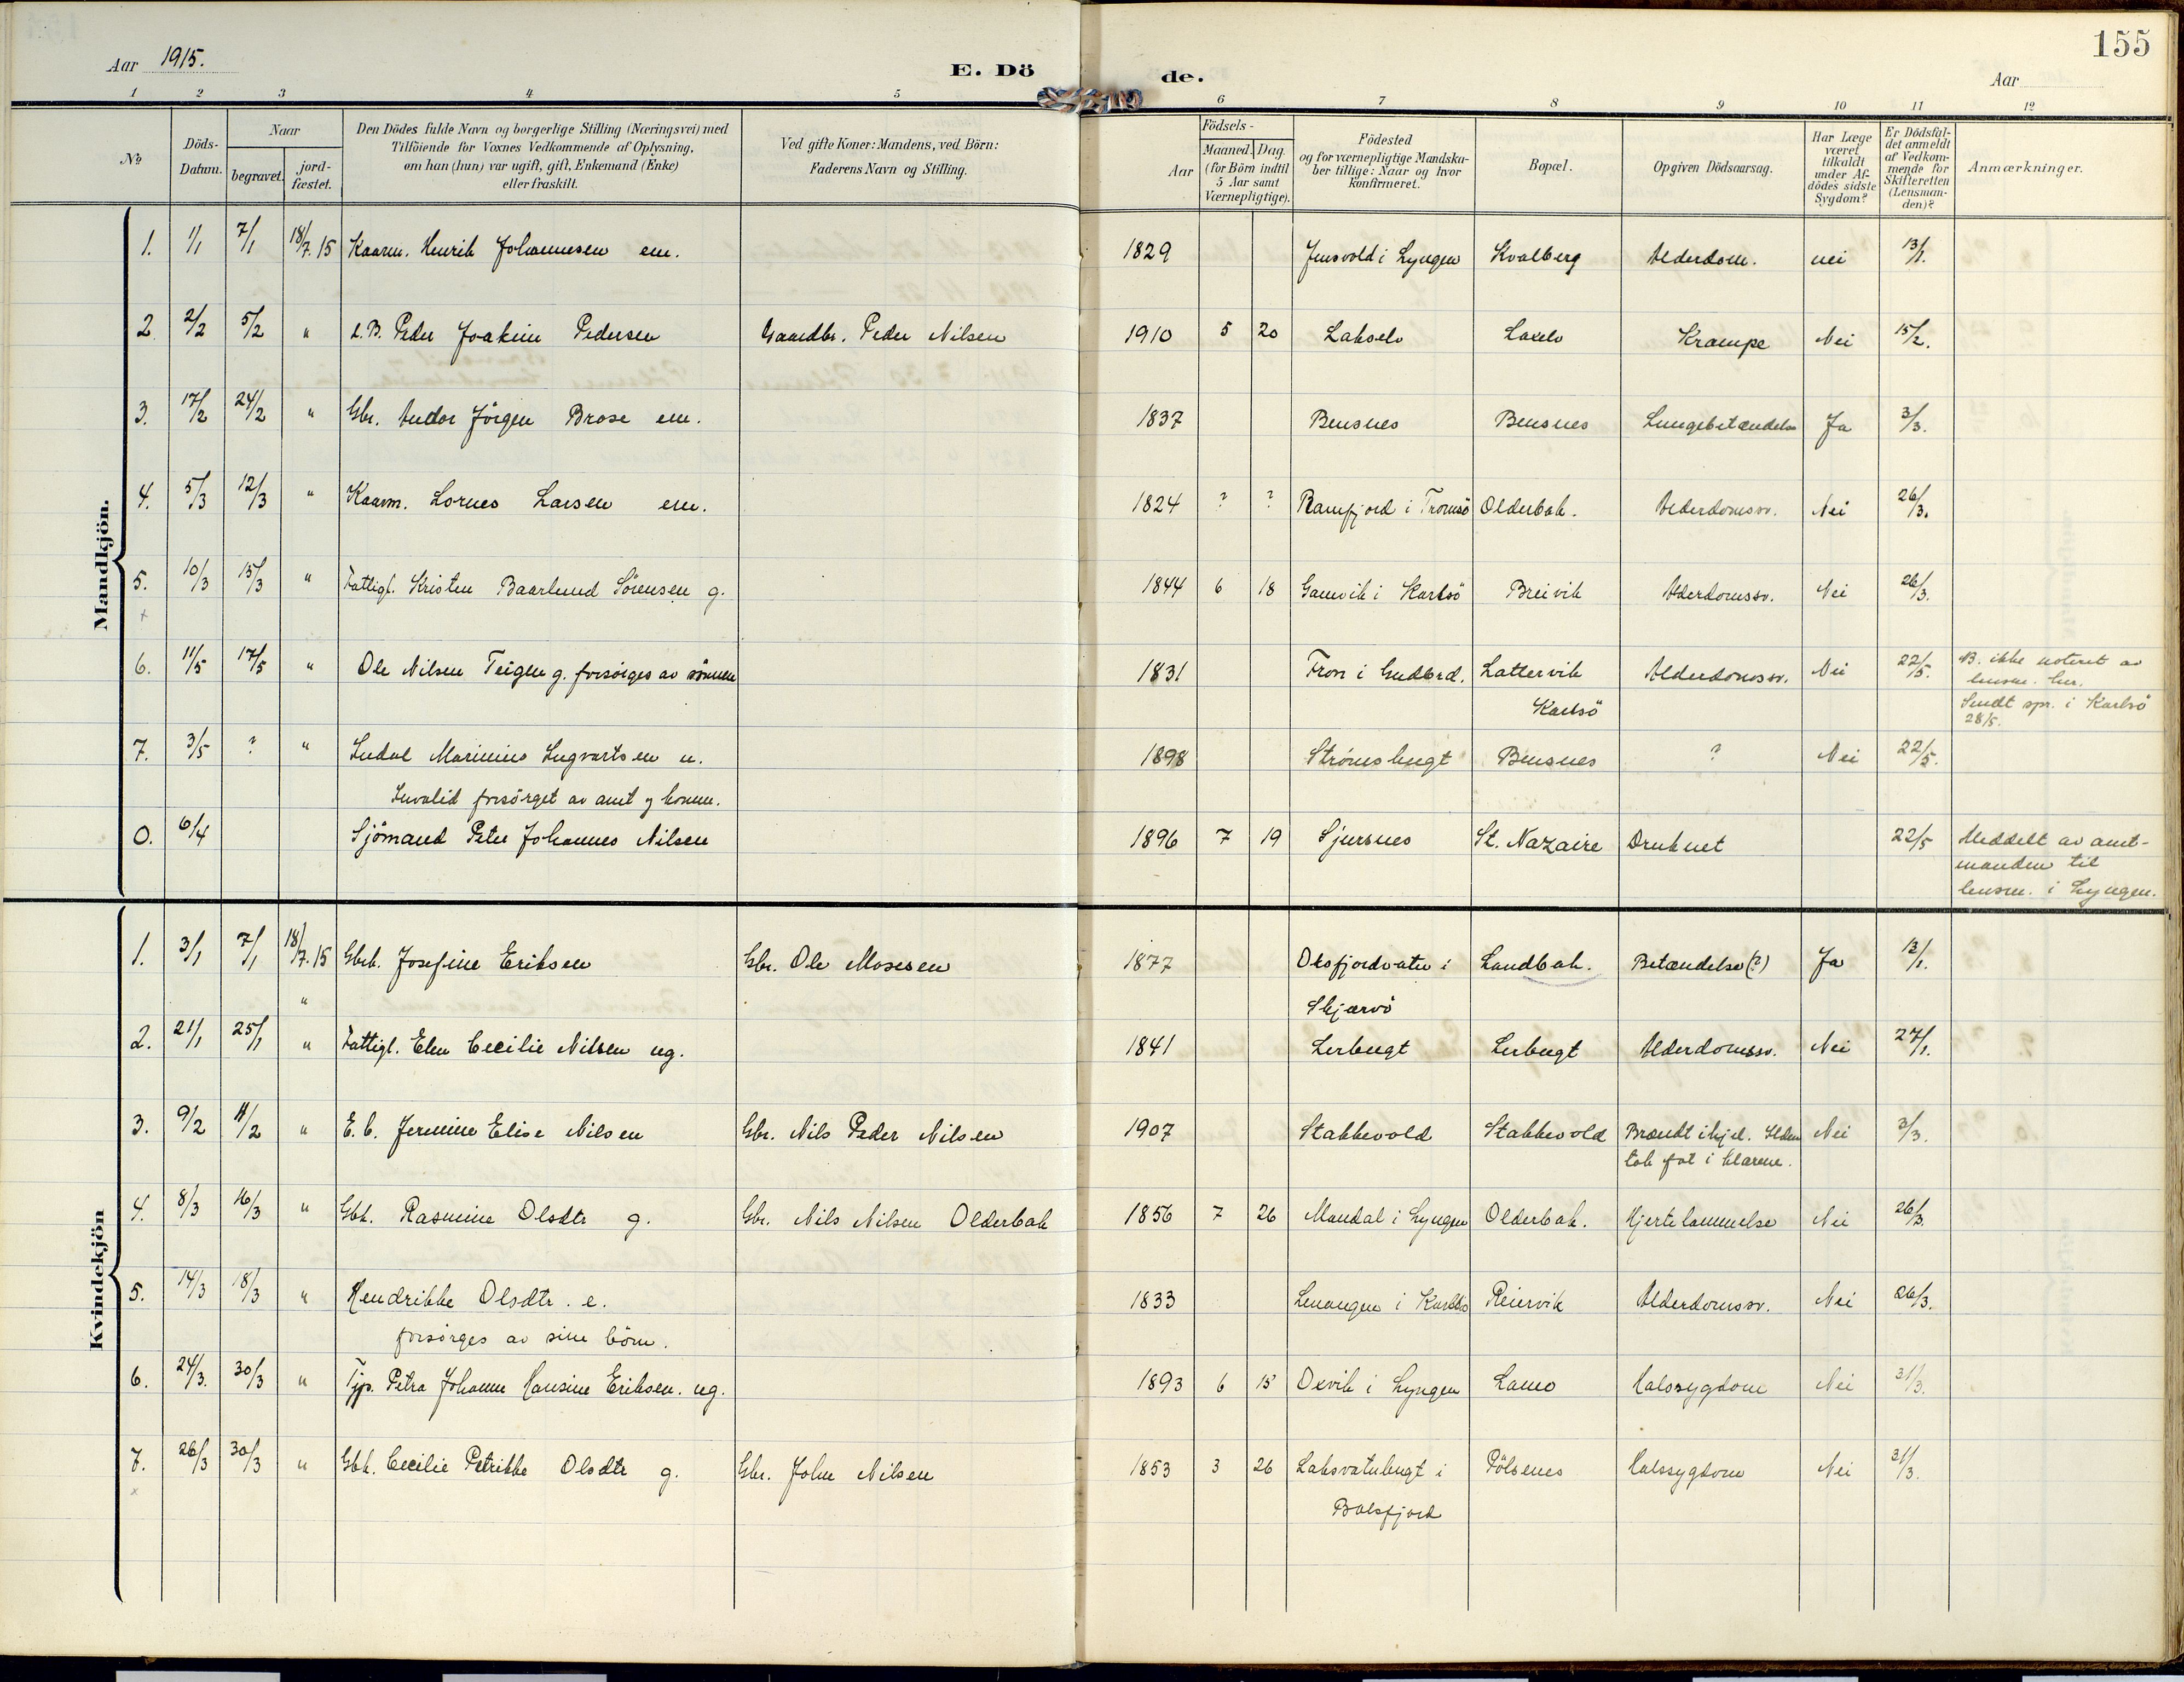 155
Aar 1915.
E. Dö
de.
Aar
1 2 3 4 5 6 7 8 9 10 11 12
No
Döds-
Datum.
Naar
begravet.
jord-
fæstet.
Den Dödes fulde Navn og borgerlige Stilling (Næringsvei) med
Tilföiende for Voxnes Vedkommende af Oplysning,
om han (hun) var ugift, gift, Enkemand (Enke)
eller fraskilt.
Ved gifte Koner: Mandens, ved Börn:
Faderens Navn og Stilling.
Aar
Födsels-
Maaned. Dag.
(for Börn indtil
5 Aar samt
Værnepligtige).
Födested
og for værnepligtige Mandska-
ber tillige: Naar og hvor
konfirmeret.
Bopæl.
Opgiven Dödsaarsag.
Har Læge
været
tilkaldt
under Af-
dödes sidste
Sygdom?
Er Dödsfal-
det anmeldt
af Vedkom-
mende for
Skifteretten
(Lensman-
den)?
Anmærkninger.
Mandkjön.
1. 1/1 7/1 18/7.15 Kaarm. Henrik Johannesen em. 1829 Jensvold i Lyngen Kvalberg Alderdom. nei 13/1.
2. 2/2 5/2 " Peder Joakim Pedersen Gaardbr. Peder Nilsen 1910 5 20 Lakselv Laxelv Krampe Nei 15/2.
3. 17/2 24/2 " Gbr. Andor Jörgen Brose em. 1837 Bensnes Bensnes Lungebetændelse Ja 3/3.
4. 5/3 12/3 " Kaarm. Lornes Larsen em. 1824 ? ? Ramfjord i Tromsö Olderbak. Alderdomssv. Nei 26/3.
5. 10/3 15/3 " Fattigl. Kristen Baarlund Sörensen g. 1844 6 18 Gamvik i Karlsö Breivik Alderdomssv. Nei 26/3.
+
6. 11/5 17/5 " Ole Nilsen Teigen g. forsörges av sönnen 1831 Fron i Gudbrd. Lattervik Alderdomssv. Nei 22/5. NB. ikke noteret av
Karlsö
Sendt spr. i Karlsö
28/5.
7. 3/5 ? " Ludal Marinius Ingvartsen u. 1898 Strömsbugt Bensnes ? Nei 22/5.
Invalid forsörget av amt og komm.
0. 6/4 Sjömand Peter Johannes Nilsen 1896 7 19 Sjursnes St. Nazaire Druknet 22/5 Meddelt av amt-
manden til
lensm. i Lyngen.
Kvindekjön
1. 3/1 7/1 18/7.15 Gbrk. Josefine Eriksen Gbr. Ole Mosesen 1877 Oksfjordvatn i Sandbak. Betændelse (?) Ja 13/1.
"
Skjærvö
2. 21/1 25/1 " Fattigl. Elen Cecilie Nilsen ug. 1841 Lerbugt Lerbugt Alderdomssv. Nei 27/1.
3. 9/2 11/2 " E. B. Jermine Elise Nilsen Gbr. Nils Peder Nilsen 1907 Stakkevold Stakkevold Brændt ihjel. Ilden Nei 3/3.
tok fat i klærne.
4. 8/3 16/3 " Gbk. Rasmine Olsdtr g. Gbr. Nils Nilsen Olderbak 1856 7 26 Mandal i Lyngen Olderbak. Hjertelammelse Nei 26/3.
5. 14/3 18/3 " Hendrikke Olsdtr. e. 1833 Lenangen i Karlsö Reiervik Alderdomssv. Nei 26/3.
forsörges av sine börn.
6. 24/3. 30/3 " Tjp. Petra Johanne Hansine Eriksen. ug. 1893 6 15 Oxvik i Lyngen Lamo Halssygdom Nei 31/3.
7. 26/3 30/3 " Gbk. Cecilie Petrikke Olsdtr g. Gbr. John Nilsen 1853 3 26 Laksvatnbugt i Pölsenes Halssygdom Nei 31/3.
x
Balsfjord